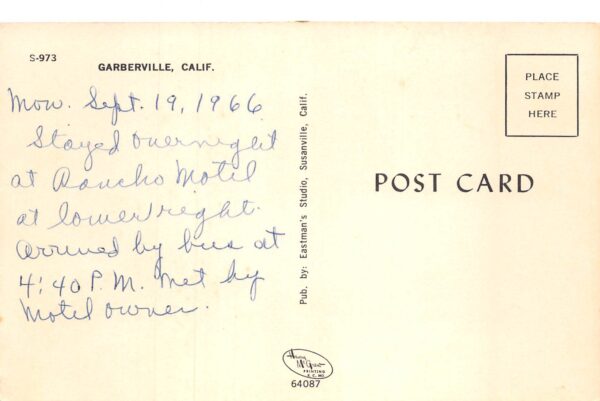 S-973
GARBERVILLE, CALIF.
Mon. Sept. 19, 1966
Stayed overnight
at Rancho Motel
at lower right.
Arrived by bus at
4:40 P.M. Met by
Motel owner.
Pub. by: Eastman's Studio, Susanville, Calif.
PLACE
STAMP
HERE
POST CARD
Henry
McGrew
PRINTING
K.C. MO.
64087